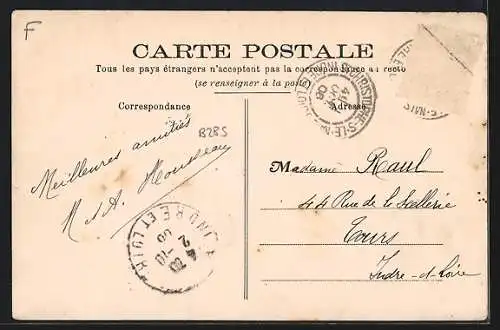 F
CARTE POSTALE
Tous les pays étrangers n'acceptent pas la correspondance au recto
(se renseigner à la poste)
Correspondance
Adresse
B285
Meilleures amitiés
Madame Raul
44 Rue de la Scellerie
Tours
Indre-et-Loire
INDRE ET LOIRE